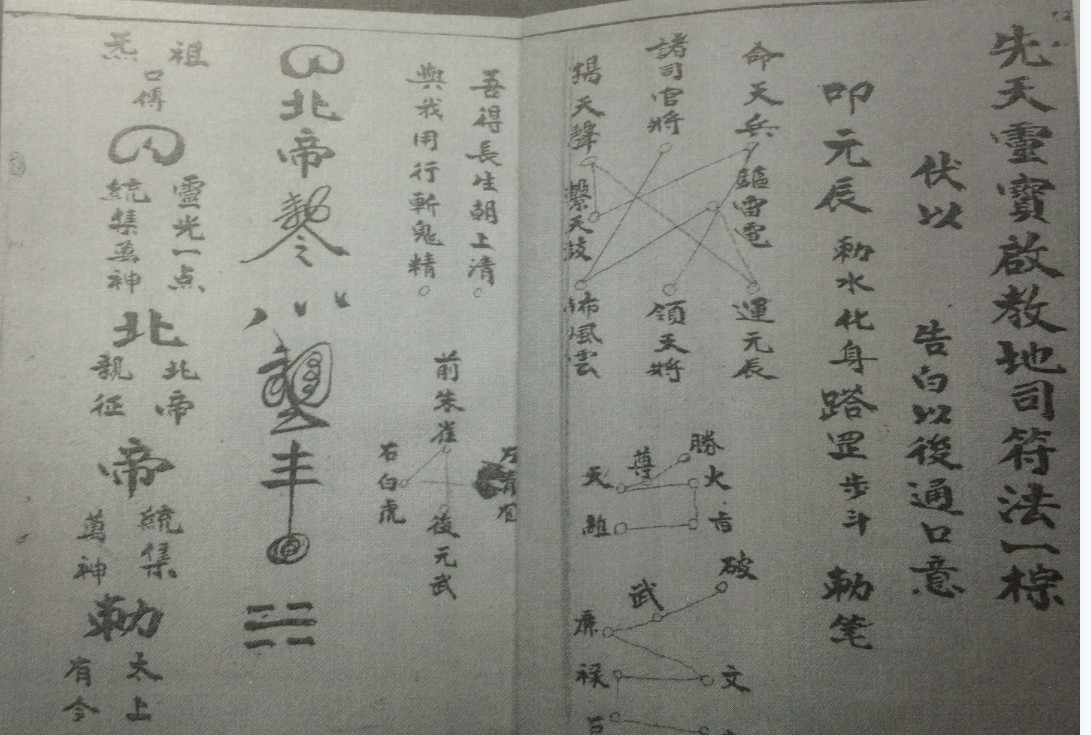 先天靈寶啟教地司符法一棕
伏以 告白以後通口意
叩元辰 勅水化身踏罡步斗 勅笔
命天兵 驅雷電 運元辰
諸司官將 領天將
揚天聲 擊天鼓 佈風雲
勝
尊
天
火
離
破
武
廉
文
祿
吾得長生朝上清
與我用行斬鬼精
前朱雀
右白虎
後元武
北帝勅令
祖炁口傳
靈光一点
統集萬神
北
北帝
親征
帝
統集
萬神
勅
太上
有令